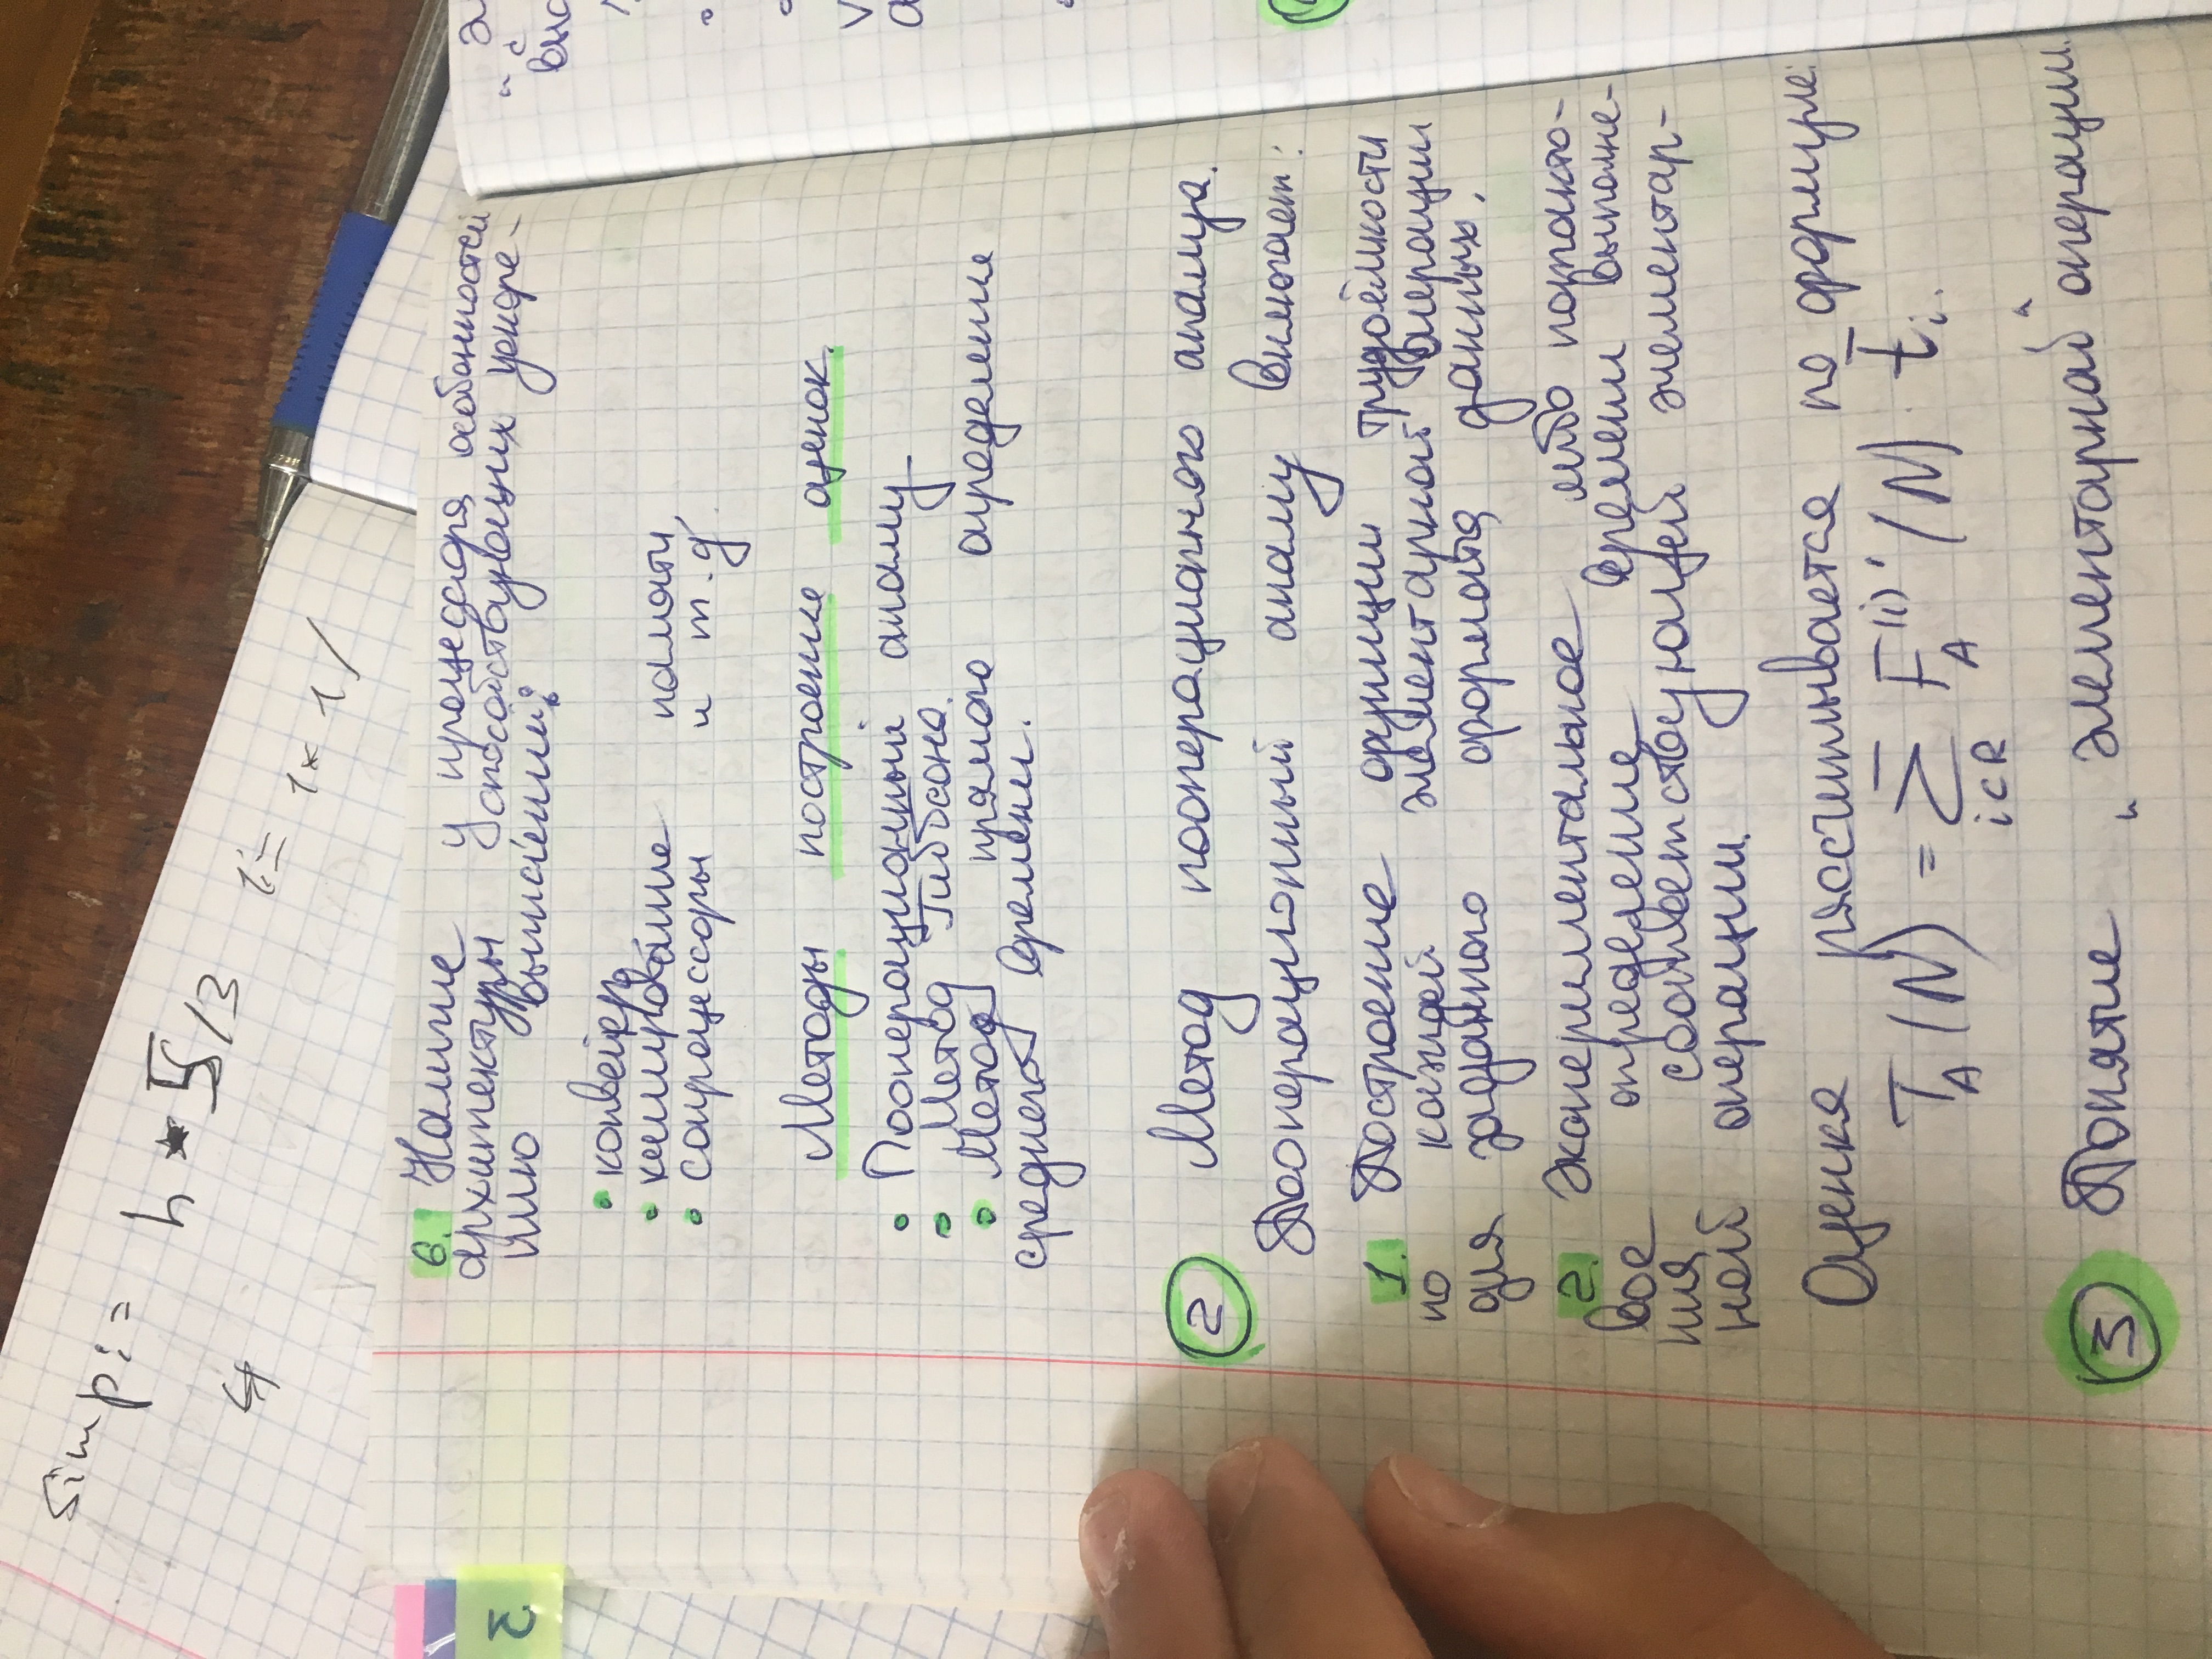 simp:=
h * S/3
i:= 1* 1/
3
6. Наличие у процессора особенностей
архитектуры способствующих ускоре-
нию вычислений:
• конвейер,
• кеширование памяти,
• сопроцессоры и т.д.
Методы построение оценок.
• Пооперационный анализ
• Метод Гиббсона.
• Метод прямого определение
среднего времени.
2 Метод пооперационного анализа.
Пооперационный анализ включает:
1. Построение функции трудоёмкости
по каждой элементарной операции
для заданного формата данных.
2. Экспериментальное либо потакто-
вое определение времени выполне-
ния соответствующей элементар-
ной операции.
Оценка рассчитывается по формуле:
T_A(N) = Σ F_A^(i)'(N) · t̄i.
i⊂R
3 Понятие „элементарной“ операции.